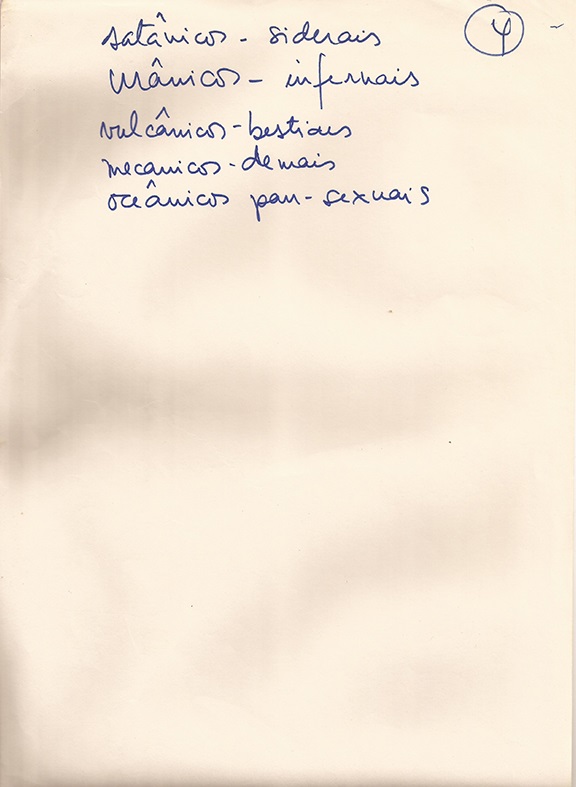 4
satânicos - siderais
Urânicos - infernais
vulcânicos - bestiais
mecanicos - demais
oceânicos pan - sexuais